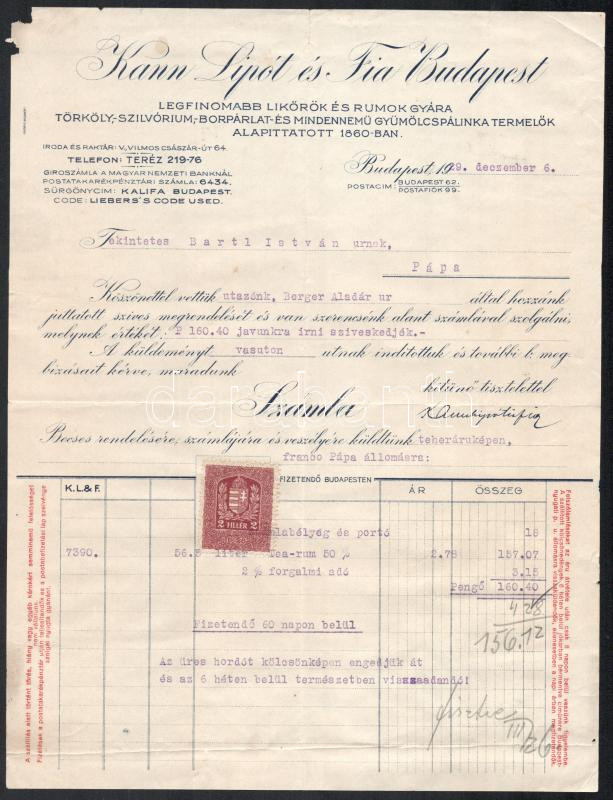 Kann Lipót és Fia Budapest
LEGFINOMABB LIKŐRÖK ÉS RUMOK GYÁRA
TÖRKÖLY,-SZILVÓRIUM,-BORPÁRLAT-ÉS MINDENNEMŰ GYÜMÖLCSPÁLINKA TERMELŐK
ALAPITTATOTT 1860-BAN.
IRODA ÉS RAKTÁR: V., VILMOS CSÁSZÁR-ÚT 64.
TELEFON: TERÉZ 219-76
GIROSZÁMLA A MAGYAR NEMZETI BANKNÁL
POSTATAKARÉKPÉNZTÁRI SZÁMLA: 6434.
SÜRGÖNYCIM: KALIFA BUDAPEST.
CODE: LIEBERS'S CODE USED.
Budapest, 1929. deczember 6.
POSTACIM: BUDAPEST 62.
POSTAFIÓK 99.
Tekintetes Bartl István urnak,
Pápa
Köszönettel vettük utazónk, Berger Aladár ur által hozzánk
juttatott szives megrendelését és van szerencsénk alant számlával szolgálni,
melynek értékét: P 160.40 javunkra irni sziveskedjék.-
A küldeményt vasuton utnak inditottuk és további b. meg-
bizásait kérve, maradunk
kitünő tisztelettel
Számla
Becses rendelésére, számlájára és veszélyére küldtünk teheráruképen,
franco Pápa állomásra:
K.L.& F.
FIZETENDŐ BUDAPESTEN
ÁR
ÖSSZEG
2 FILLÉR 2
labélyeg és portó 18
7390. 56.5 liter Tea-rum 50 % 2.78 157.07
2 % forgalmi adó 3.15
Pengő 160.40
4 28
156.12
Fizetendő 60 napon belül
Az üres hordót kölcsönképen engedjük át
és az 6 héten belül természetben visszaadandó!
III/26
A szállitás alatt történt törés, hiány vagy egyéb károkért semminemű felelősséget
nem vállalunk.
Fizetések a postatakarékpénztár utján teljesitendők és a postabefizetési lap szelvénye
szolgál nyugta gyanánt.
darabanth